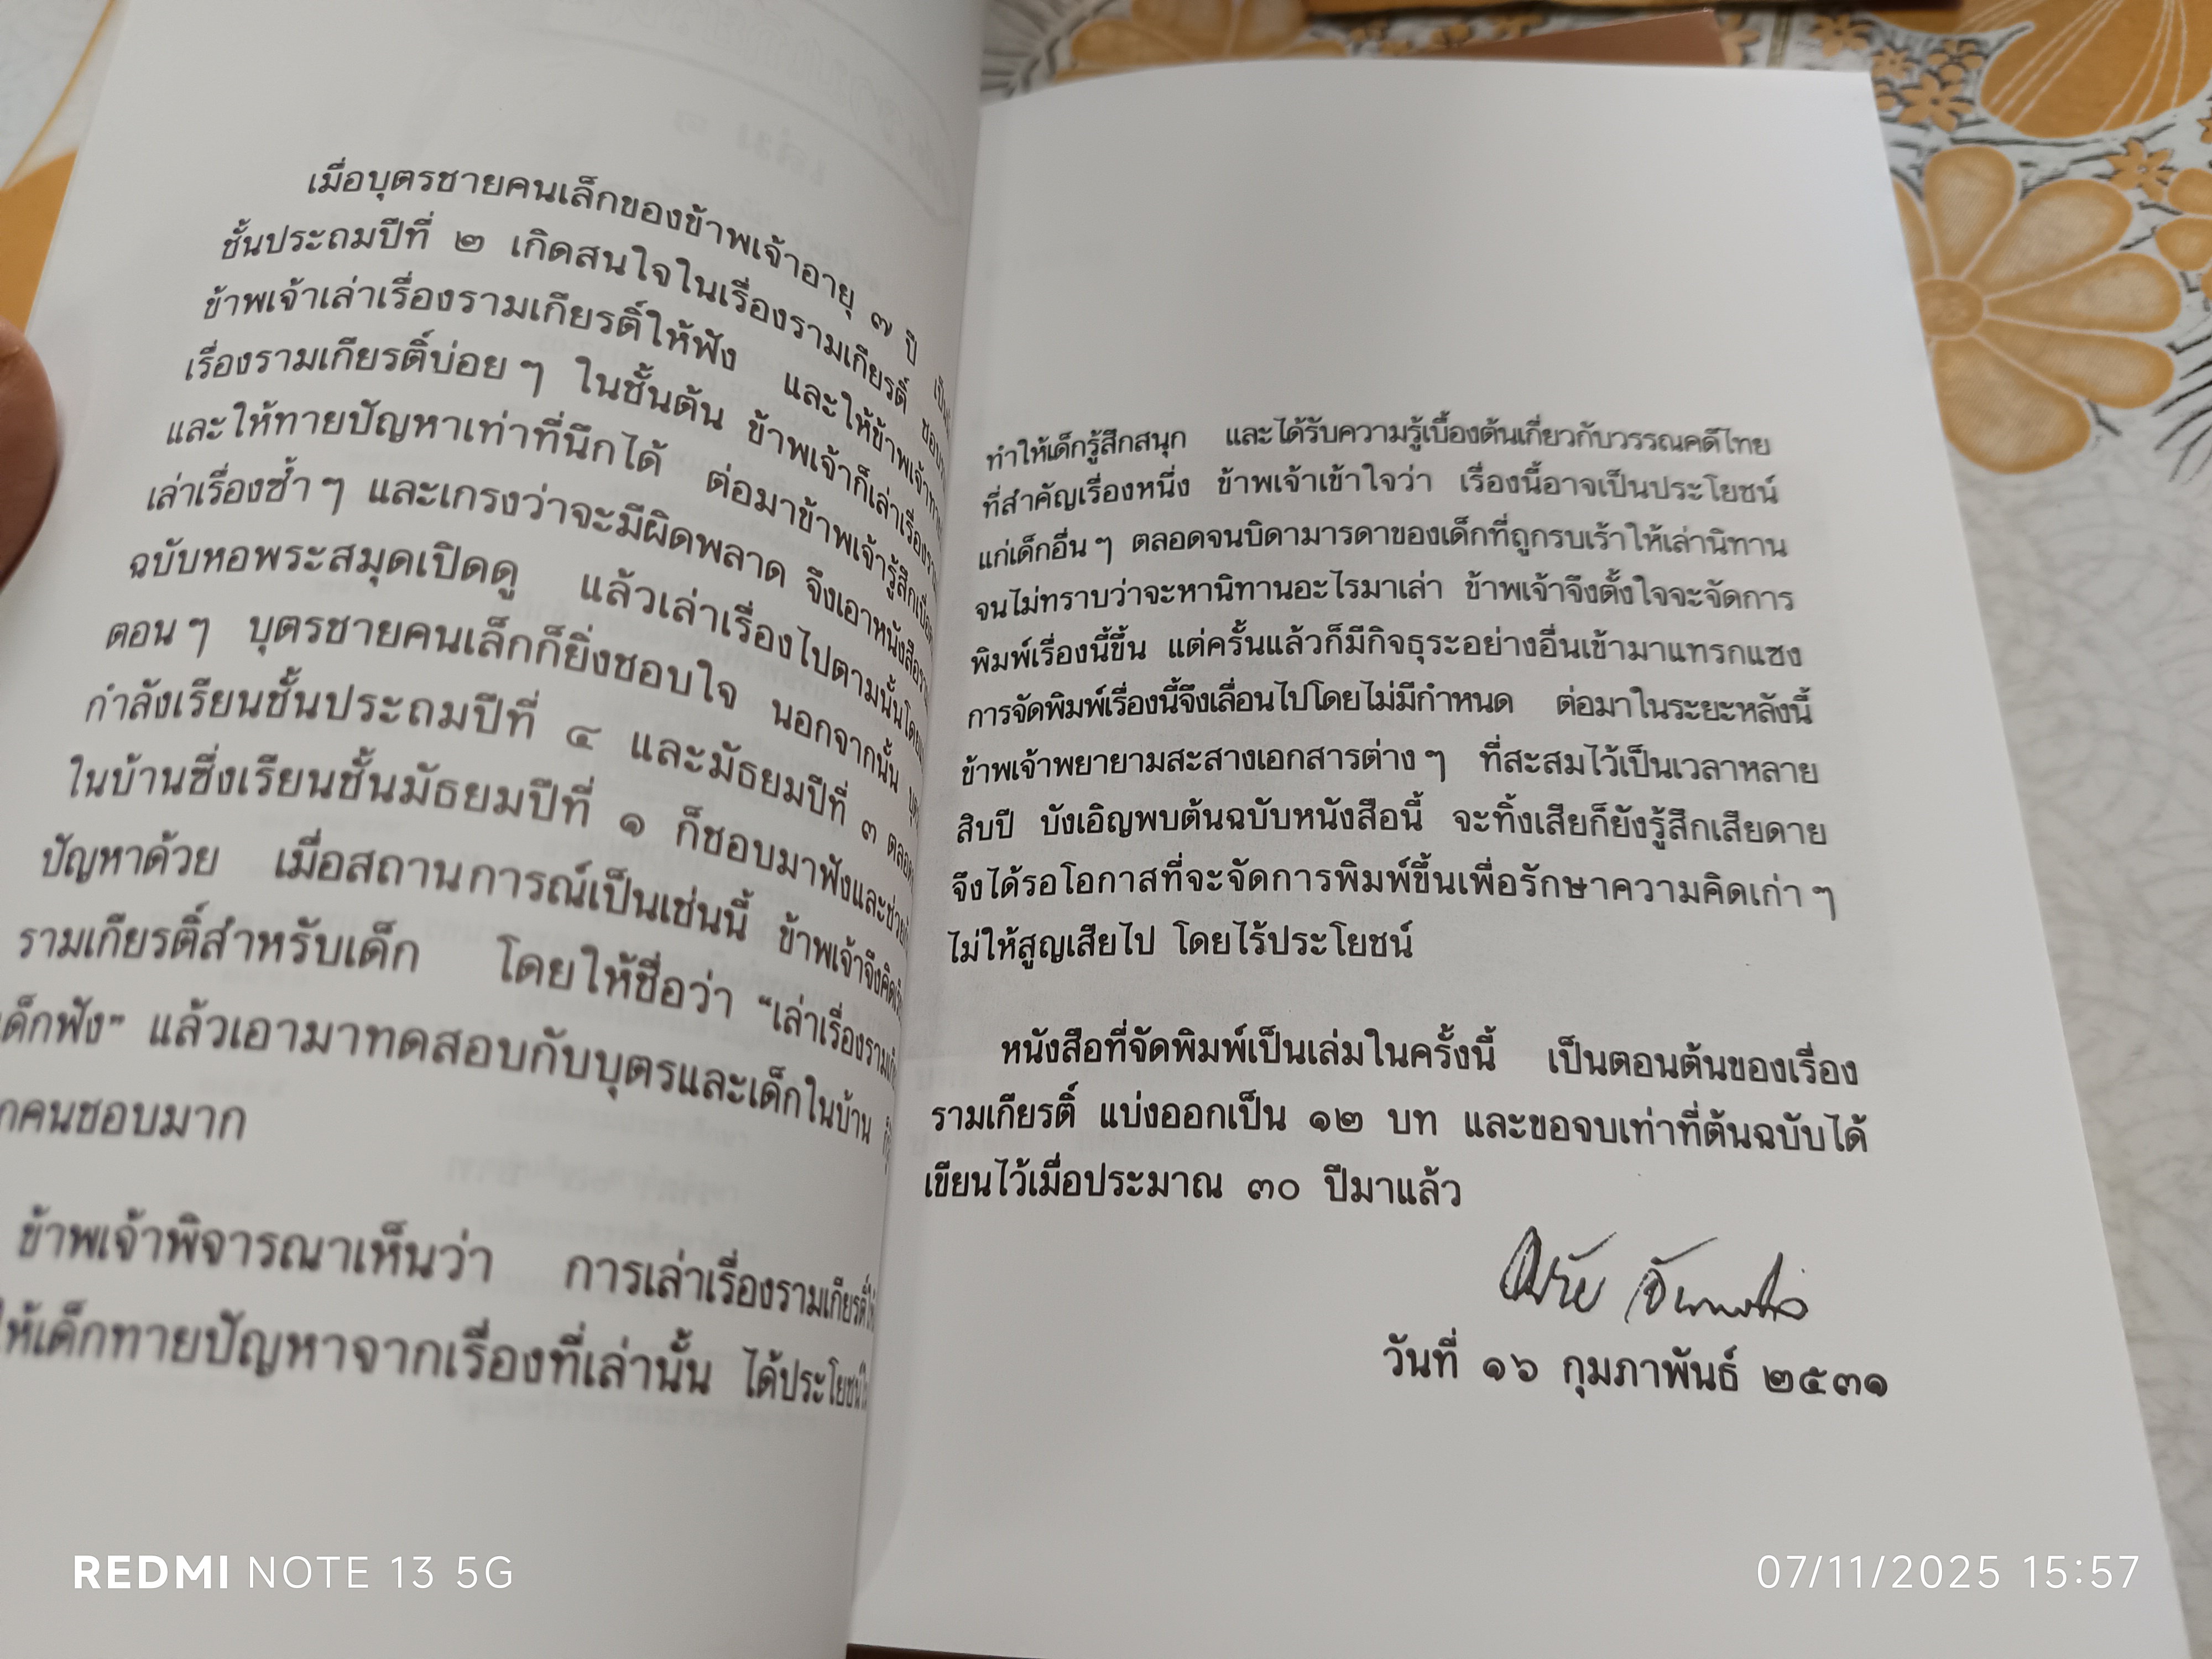 เมื่อบุตรชายคนเล็กของข้าพเจ้าอายุ ๗ ปี
ชั้นประถมปีที่ ๒ เกิดสนใจในเรื่องรามเกียรติ์
ข้าพเจ้าเล่าเรื่องรามเกียรติ์ให้ฟัง และให้ข้าพเจ้า
เรื่องรามเกียรติ์บ่อย ๆ ในชั้นต้น ข้าพเจ้าก็เล่าเรื่อง
และให้ทายปัญหาเท่าที่นึกได้ ต่อมาข้าพเจ้ารู้สึก
เล่าเรื่องซ้ำ ๆ และเกรงว่าจะมีผิดพลาด จึงเอาหนังสือ
ฉบับหอพระสมุดเปิดดู แล้วเล่าเรื่องไปตามนั้น
ตอน ๆ บุตรชายคนเล็กก็ยิ่งชอบใจ นอกจากนั้น
กำลังเรียนชั้นประถมปีที่ ๔ และมัธยมปีที่ ๓
ในบ้านซึ่งเรียนชั้นมัธยมปีที่ ๑ ก็ชอบมาฟังและ
ปัญหาด้วย เมื่อสถานการณ์เป็นเช่นนี้ ข้าพเจ้าจึงคิด
รามเกียรติ์สำหรับเด็ก โดยให้ชื่อว่า "เล่าเรื่อง
เด็กฟัง" แล้วเอามาทดสอบกับบุตรและเด็กในบ้าน
คนชอบมาก
ข้าพเจ้าพิจารณาเห็นว่า การเล่าเรื่องรามเกียรติ์
ให้เด็กทายปัญหาจากเรื่องที่เล่านั้น ได้ประโยชน์
ทำให้เด็กรู้สึกสนุก และได้รับความรู้เบื้องต้นเกี่ยวกับวรรณคดีไทย
ที่สำคัญเรื่องหนึ่ง ข้าพเจ้าเข้าใจว่า เรื่องนี้อาจเป็นประโยชน์
แก่เด็กอื่น ๆ ตลอดจนบิดามารดาของเด็กที่ถูกรบเร้าให้เล่านิทาน
จนไม่ทราบว่าจะหานิทานอะไรมาเล่า ข้าพเจ้าจึงตั้งใจจะจัดการ
พิมพ์เรื่องนี้ขึ้น แต่ครั้นแล้วก็มีกิจธุระอย่างอื่นเข้ามาแทรกแซง
การจัดพิมพ์เรื่องนี้จึงเลื่อนไปโดยไม่มีกำหนด ต่อมาในระยะหลังนี้
ข้าพเจ้าพยายามสะสางเอกสารต่าง ๆ ที่สะสมไว้เป็นเวลาหลาย
สิบปี บังเอิญพบต้นฉบับหนังสือนี้ จะทิ้งเสียก็ยังรู้สึกเสียดาย
จึงได้รอโอกาสที่จะจัดการพิมพ์ขึ้นเพื่อรักษาความคิดเก่า ๆ
ไม่ให้สูญเสียไป โดยไร้ประโยชน์
หนังสือที่จัดพิมพ์เป็นเล่มในครั้งนี้ เป็นตอนต้นของเรื่อง
รามเกียรติ์ แบ่งออกเป็น ๑๒ บท และขอจบเท่าที่ต้นฉบับได้
เขียนไว้เมื่อประมาณ ๓๐ ปีมาแล้ว
วันที่ ๑๖ กุมภาพันธ์ ๒๕๓๑
REDMI NOTE 13 5G
07/11/2025 15:57